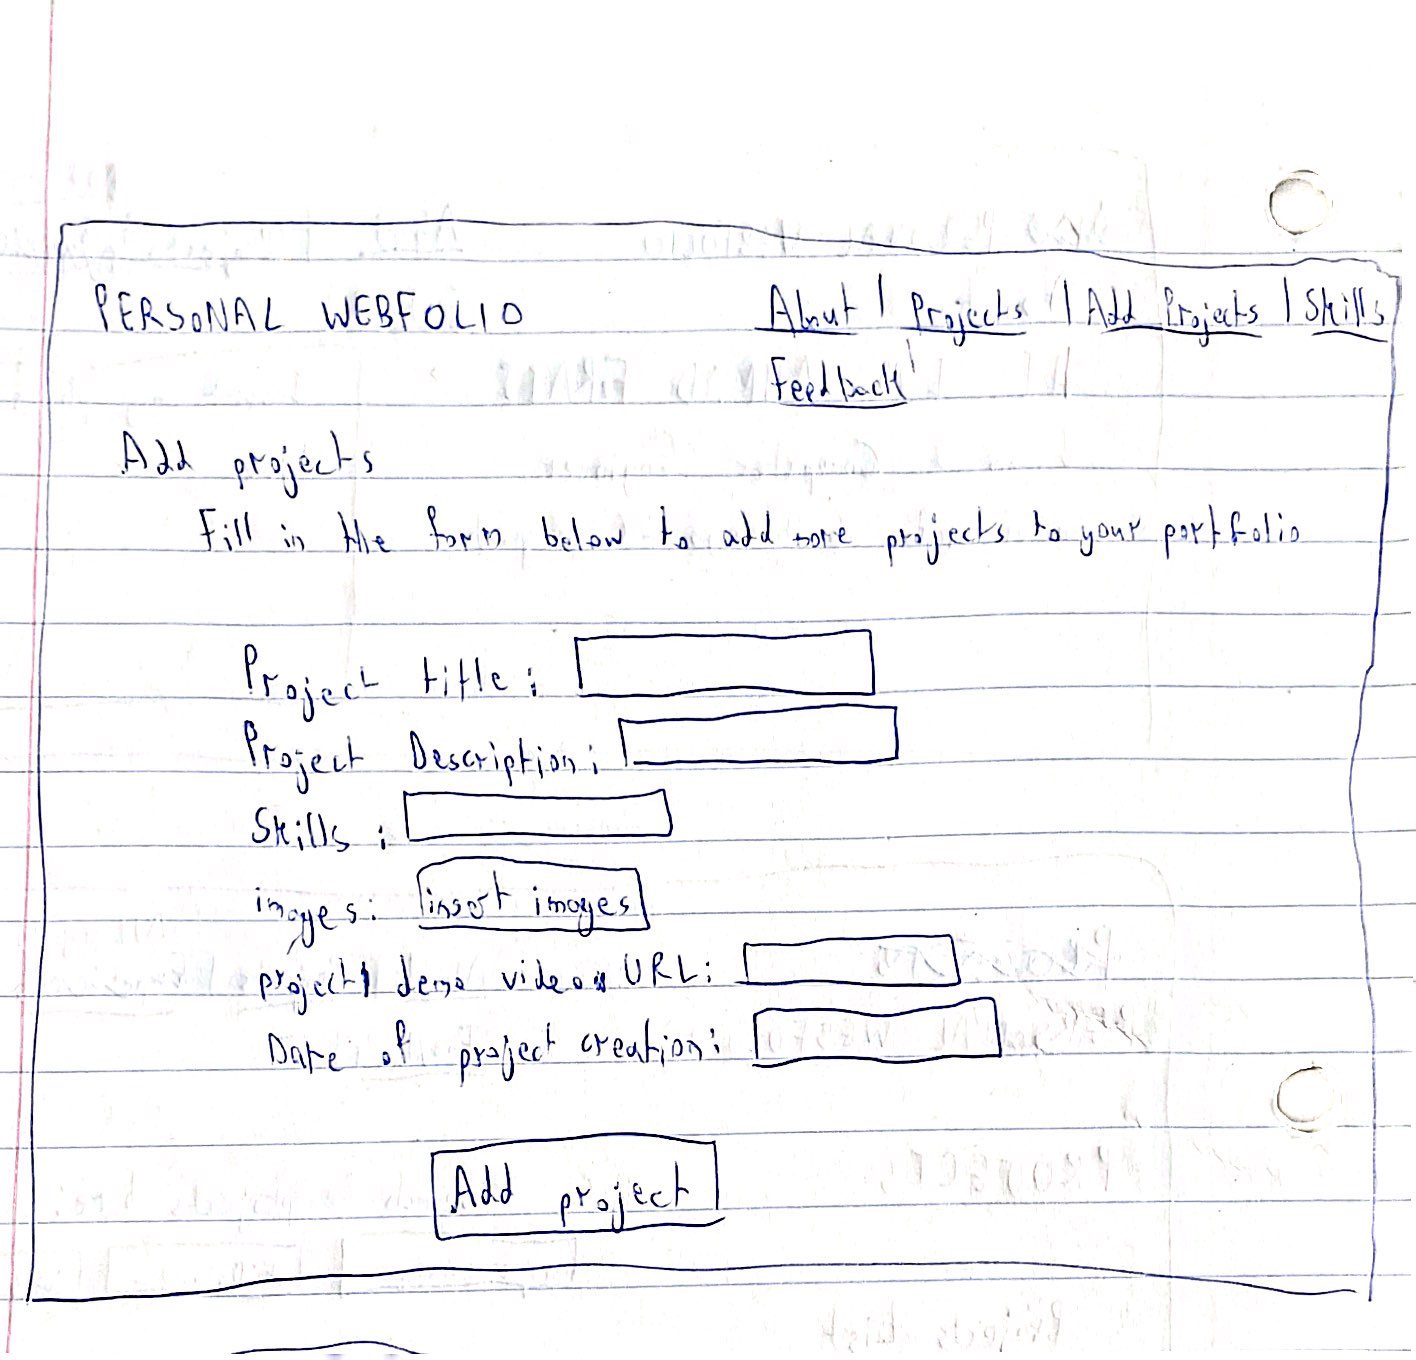 PERSONAL WEBFOLIO About | Projects | Add Projects | Skills
Feedback
Add projects
Fill in the form below to add more projects to your portfolio
Project title:
Project Description:
Skills:
images: insert images
project demo video URL:
Date of project creation:
Add project